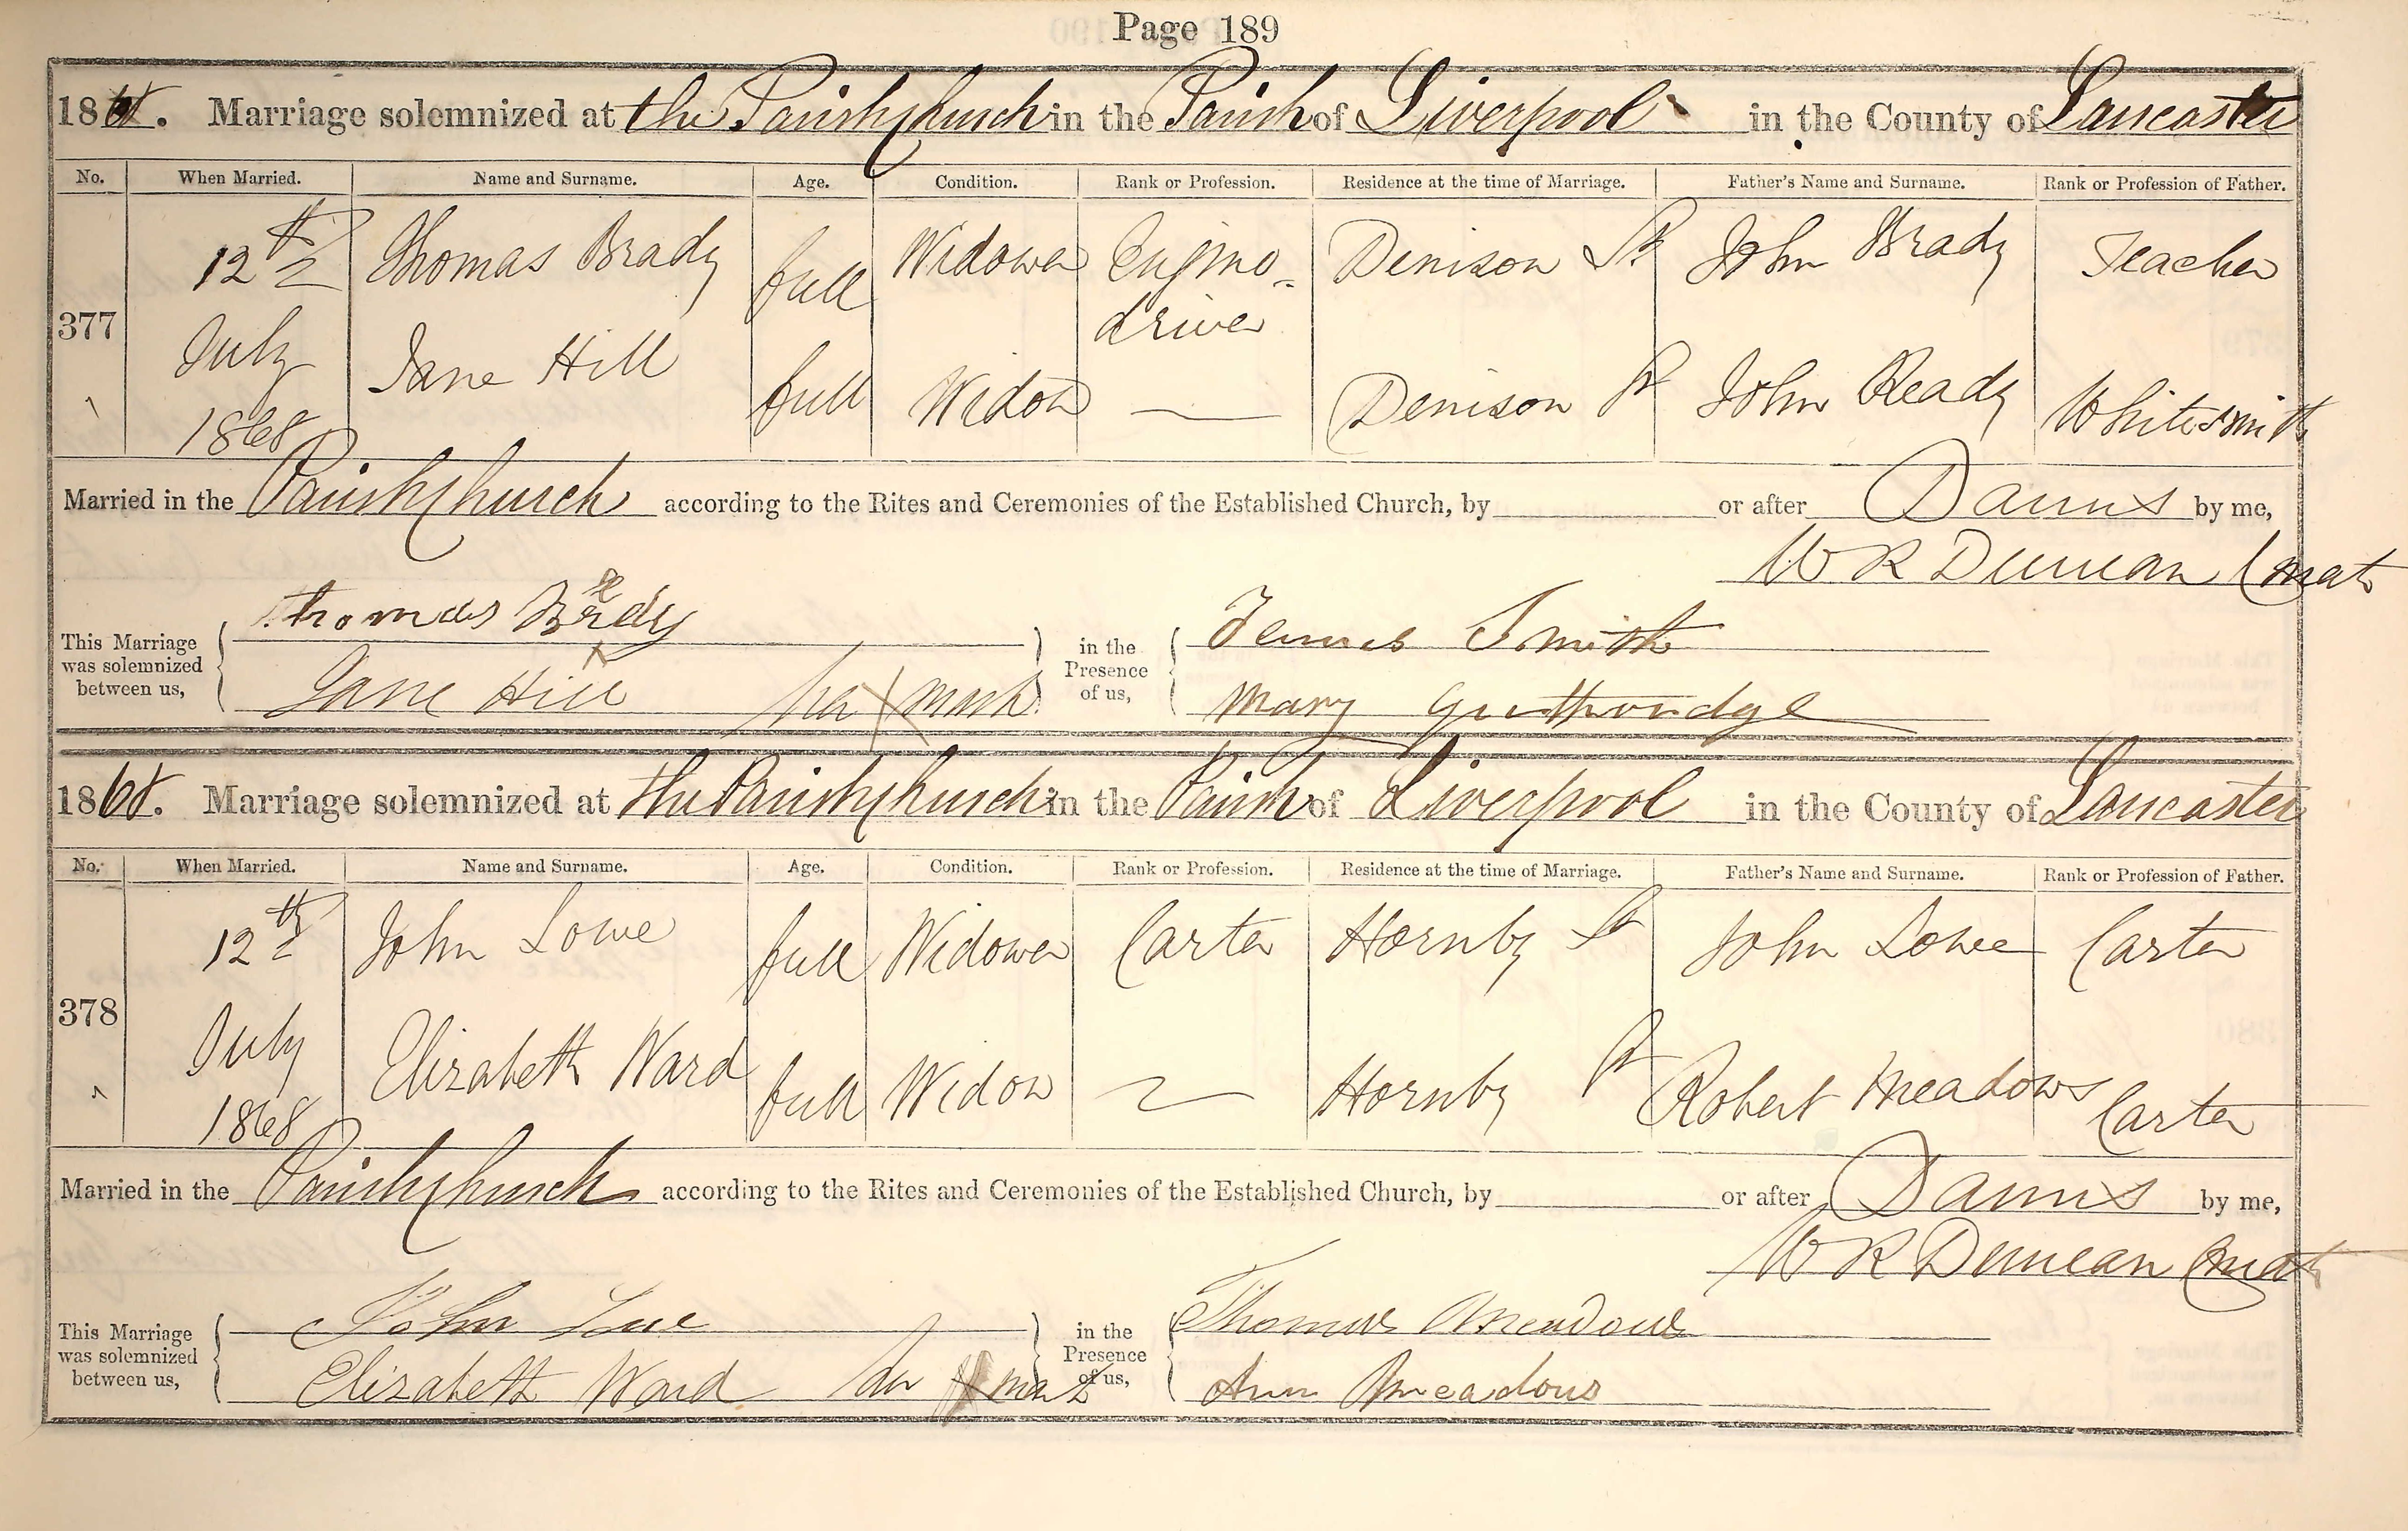 Page 189
1868. Marriage solemnized at the Parish Church in the Parish of Liverpool in the County of Lancaster
No. When Married. Name and Surname. Age. Condition. Rank or Profession. Residence at the time of Marriage. Father's Name and Surname. Rank or Profession of Father.
377 12th July 1868 Thomas Brady full Widower Engine-driver Denison St John Brady Teacher
Jane Hill full Widow — Denison St John Ready Whitesmith
Married in the Parish Church according to the Rites and Ceremonies of the Established Church, by or after Banns by me,
W R Duncan Curate
This Marriage was solemnized between us, Thomas Bredy
Jane Hill her X mark
in the Presence of us, Smith
Mary
1868. Marriage solemnized at the Parish Church in the Parish of Liverpool in the County of Lancaster
No. When Married. Name and Surname. Age. Condition. Rank or Profession. Residence at the time of Marriage. Father's Name and Surname. Rank or Profession of Father.
378 12th July 1868 John Lowe full Widower Carter Hornby St John Lowe Carter
Elizabeth Ward full Widow — Hornby St Robert Meadows Carter
Married in the Parish Church according to the Rites and Ceremonies of the Established Church, by or after Banns by me,
W R Duncan Curate
This Marriage was solemnized between us, John Lue
Elizabeth Ward her X mark
in the Presence of us, Thomas Meadows
Ann Meadows